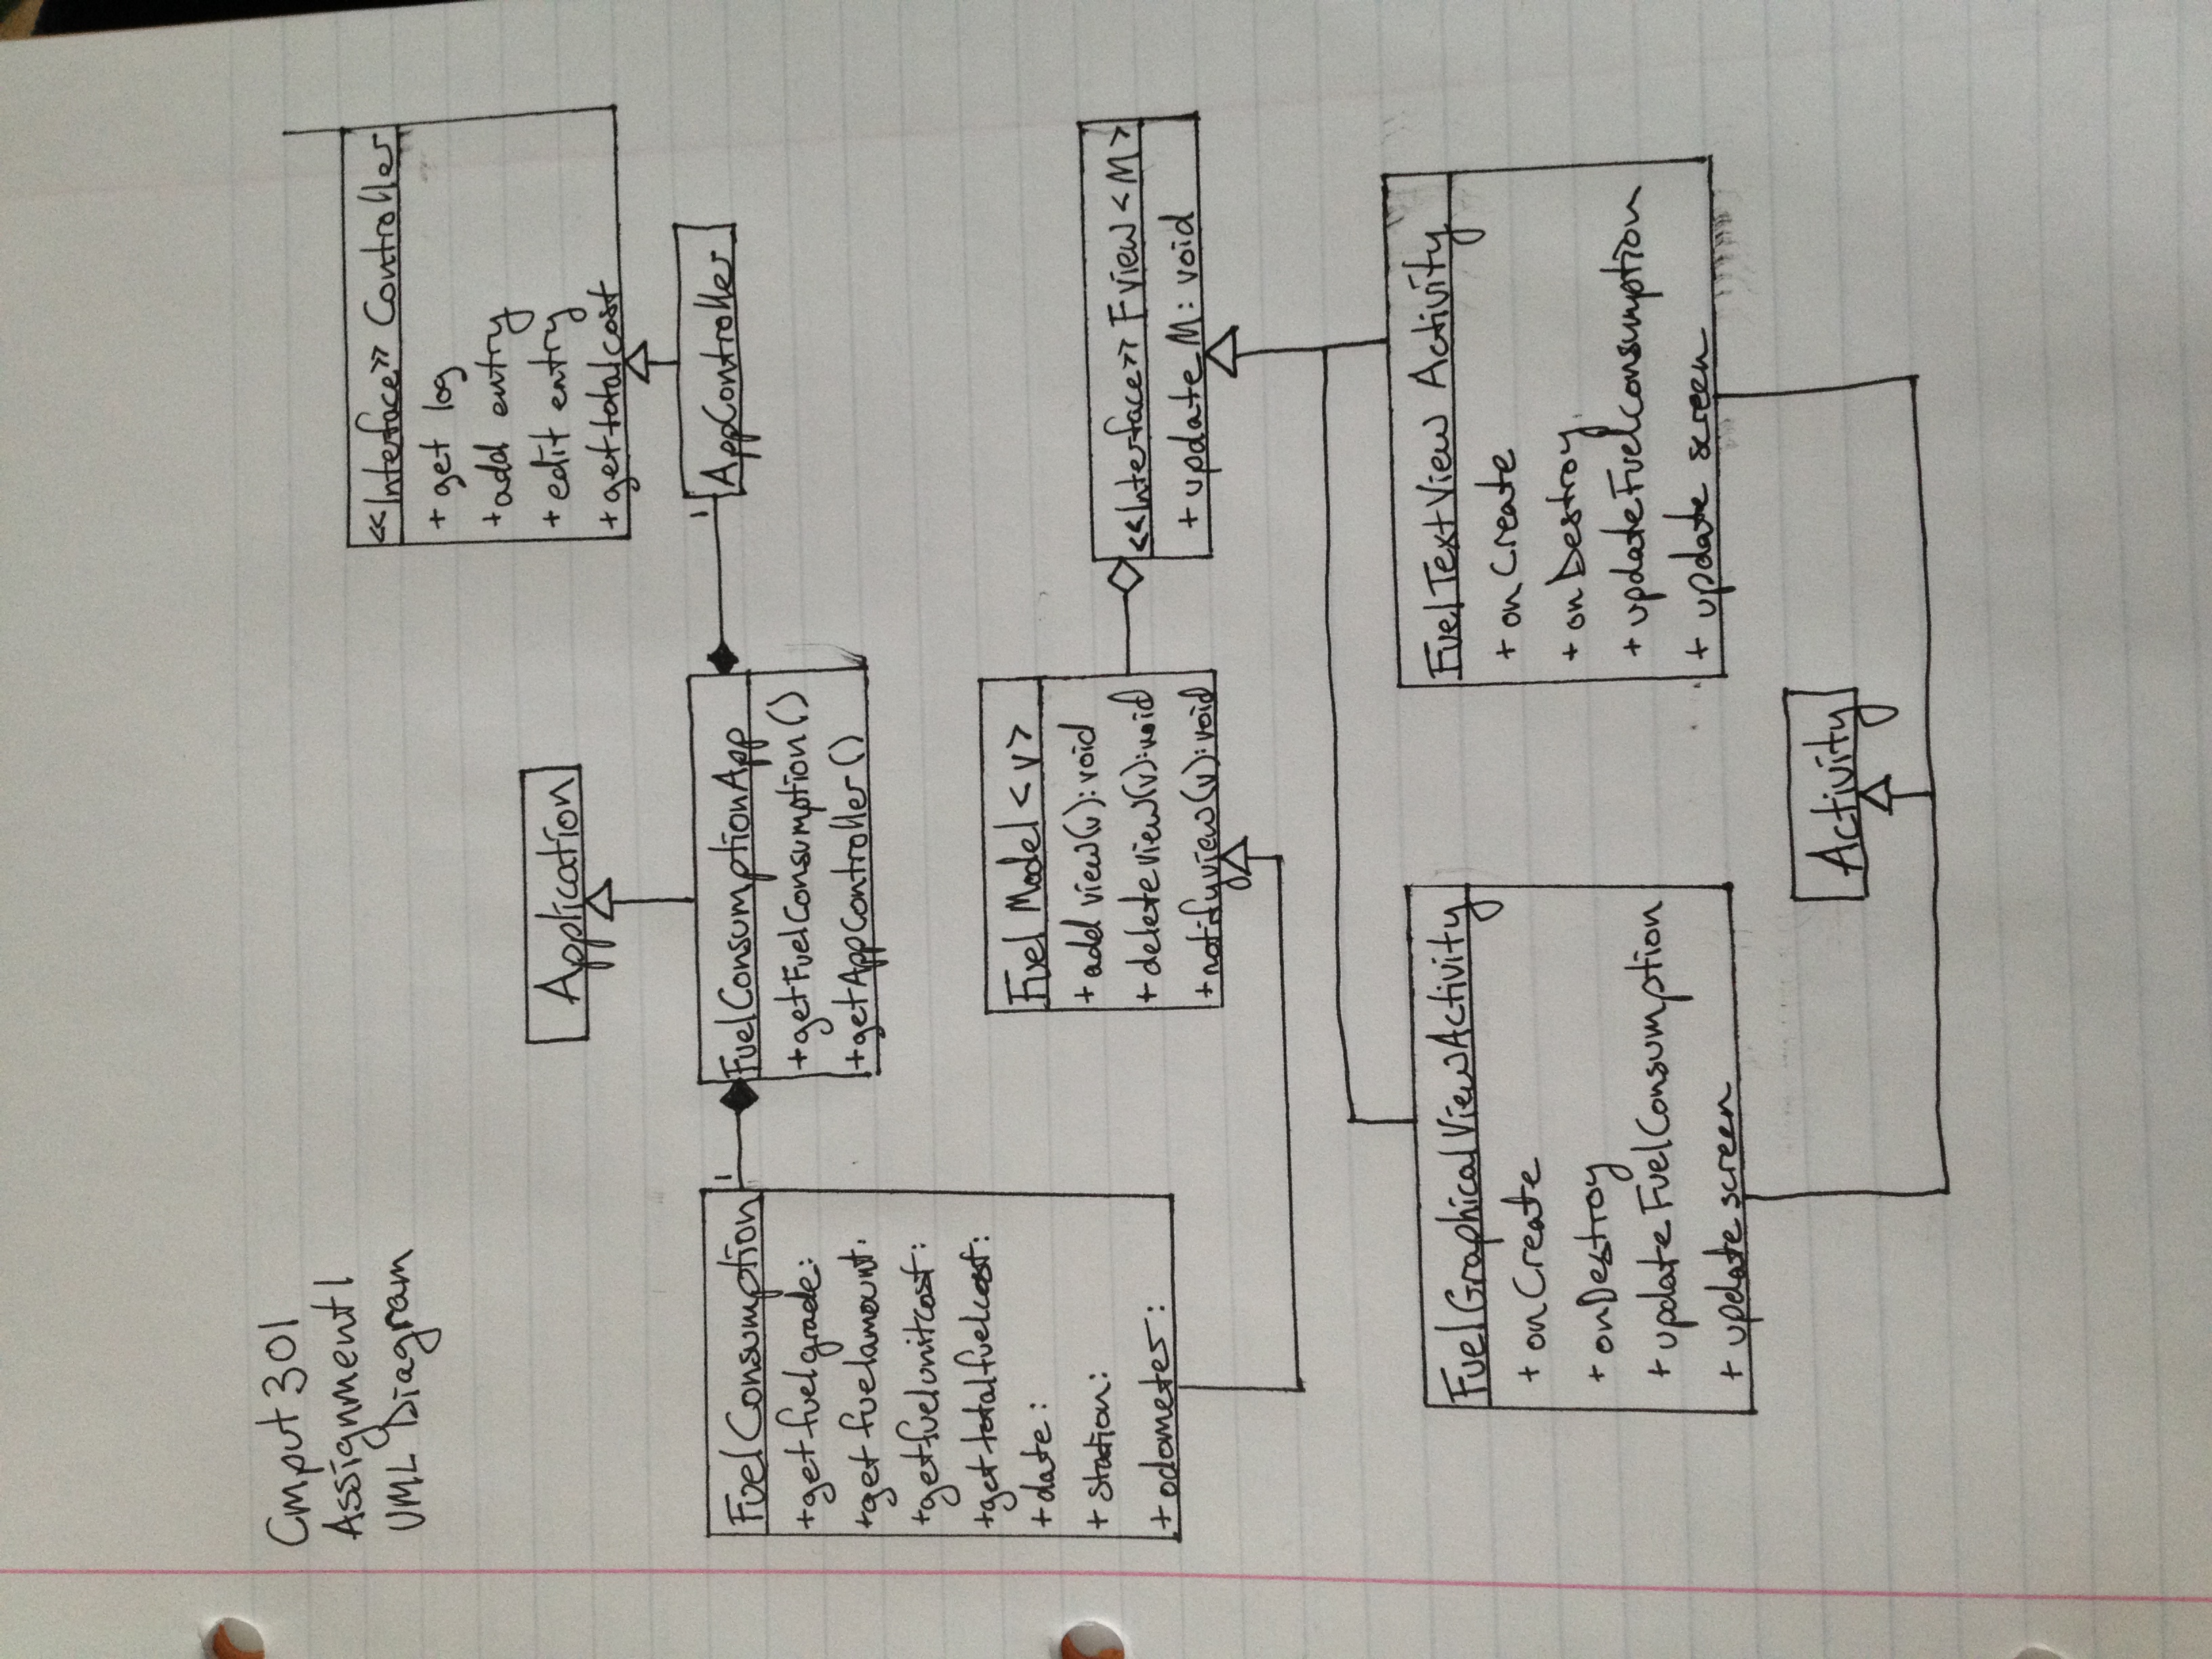 Cmput 301
Assignment 1
UML Diagram
<<Interface>> Controller
+ get log
+ add entry
+ edit entry
+ gettotalcost
Application
FuelConsumption
1
FuelConsumptionApp
1
AppController
+getfuelgrade:
+get fuelamount.
+getfuelunitcost:
+get totalfuelcost:
+ date:
+ station:
+ odometer:
+getFuelConsumption()
+getAppController()
Fuel Model <V>
+ add view(v): void
+ deleteview(v): void
+ notifyview(v): void
<<Interface>> Fview <M>
+ update M: void
FuelGraphicalViewActivity
+ onCreate
+ onDestroy
+ updateFuelConsumption
+ update screen
FuelTextView Activity
+ onCreate
+ onDestroy
+ updateFuelconsumption
+ update screen
Activity